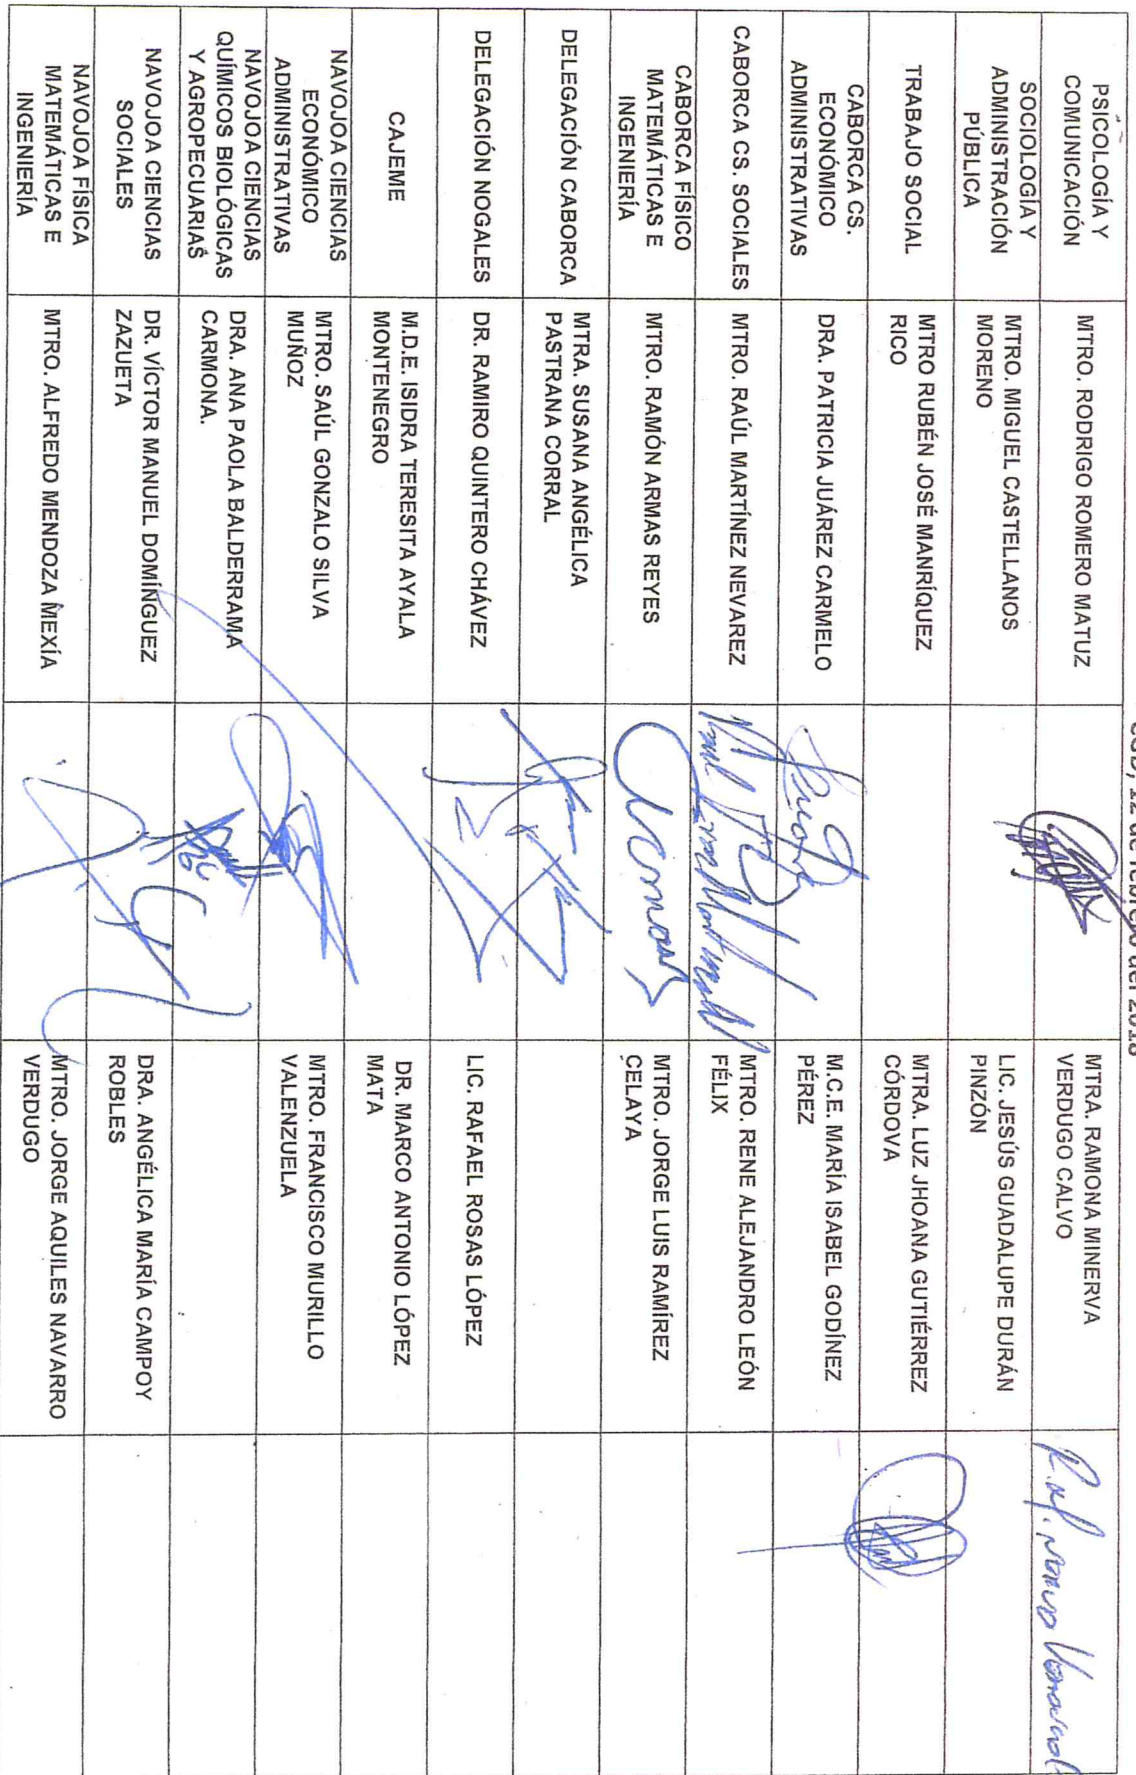 12 de febrero del 2018
PSICOLOGÍA Y
COMUNICACIÓN
MTRO. RODRIGO ROMERO MATUZ
MTRA. RAMONA MINERVA
VERDUGO CALVO
SOCIOLOGÍA Y
ADMINISTRACIÓN
PÚBLICA
MTRO. MIGUEL CASTELLANOS
MORENO
LIC. JESÚS GUADALUPE DURÁN
PINZÓN
TRABAJO SOCIAL
MTRO RUBÉN JOSÉ MANRÍQUEZ
RICO
MTRA. LUZ JHOANA GUTIÉRREZ
CÓRDOVA
CABORCA CS.
ECONÓMICO
ADMINISTRATIVAS
DRA. PATRICIA JUÁREZ CARMELO
M.C.E. MARÍA ISABEL GODÍNEZ
PÉREZ
CABORCA CS. SOCIALES
MTRO. RAÚL MARTÍNEZ NEVAREZ
MTRO. RENE ALEJANDRO LEÓN
FÉLIX
CABORCA FÍSICO
MATEMÁTICAS E
INGENIERÍA
MTRO. RAMÓN ARMAS REYES
MTRO. JORGE LUIS RAMÍREZ
CELAYA
DELEGACIÓN CABORCA
MTRA. SUSANA ANGÉLICA
PASTRANA CORRAL
DELEGACIÓN NOGALES
DR. RAMIRO QUINTERO CHÁVEZ
LIC. RAFAEL ROSAS LÓPEZ
CAJEME
M.D.E. ISIDRA TERESITA AYALA
MONTENEGRO
DR. MARCO ANTONIO LÓPEZ
MATA
NAVOJOA CIENCIAS
ECONÓMICO
ADMINISTRATIVAS
MTRO. SAÚL GONZALO SILVA
MUÑOZ
MTRO. FRANCISCO MURILLO
VALENZUELA
NAVOJOA CIENCIAS
QUÍMICOS BIOLÓGICAS
Y AGROPECUARIAS
DRA. ANA PAOLA BALDERRAMA
CARMONA.
NAVOJOA CIENCIAS
SOCIALES
DR. VÍCTOR MANUEL DOMÍNGUEZ
ZAZUETA
DRA. ANGÉLICA MARÍA CAMPOY
ROBLES
NAVOJOA FÍSICA
MATEMÁTICAS E
INGENIERÍA
MTRO. ALFREDO MENDOZA MEXÍA
MTRO. JORGE AQUILES NAVARRO
VERDUGO